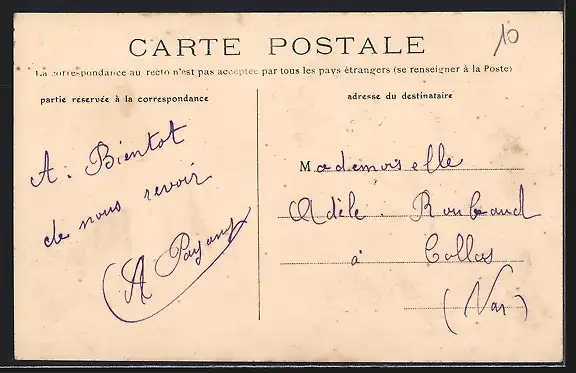 10
CARTE POSTALE
La correspondance au recto n'est pas acceptée par tous les pays étrangers (se renseigner à la Poste)
partie réservée à la correspondance
A. Bientot
de nous revoir
A
adresse du destinataire
Mademoiselle
Adèle. Roubaud
à Callas
(Var)